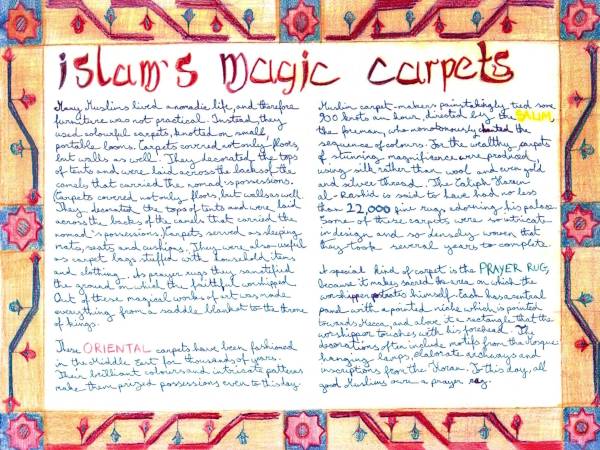 islam's Magic Carpets
Many Muslims lived a nomadic life, and therefore
furniture was not practical. Instead, they
used colourful carpets, knotted on small,
portable looms. Carpets covered not only floors,
but walls as well. They decorated the tops
of tents and were laid across the backs of the
camels that carried the nomad's possessions.
Carpets covered not only floors, but walls as well.
They decorated the tops of tents and were laid
across the backs of the camels that carried the
nomad's possessions. Carpets served as sleeping
mats, seats and cushions. They were also useful
as carpet bags stuffed with household items
and clothing. As prayer rugs they sanctified
the ground on which the faithful worshipped.
Out of these magical works of art was made
everything from a saddle blanket to the throne
of kings.
These ORIENTAL carpets have been fashioned
in the Middle East for thousands of years.
Their brilliant colours and intricate patterns
make them prized possessions even to this day.
Muslim carpet-makers painstakingly tied some
900 knots an hour, directed by the SALIM,
the foreman, who monotonously chanted the
sequence of colours. For the wealthy, carpets
of stunning magnificence were produced,
using silk rather than wool and even gold
and silver thread. The Caliph Harun
al-Rashid is said to have had no less
than 22,000 fine rugs adorning his palace.
Some of these carpets were so intricate
in design and so densely woven that
they took several years to complete.
A special kind of carpet is the PRAYER RUG,
because it makes sacred the area on which the
worshipper prostrates himself. Each has a central
panel with a pointed niche which is pointed
towards Mecca, and above it a rectangle that the
worshipper touches with his forehead. The
decorations often include motifs from the Mosque:
hanging lamps, elaborate archways and
inscriptions from the Koran. To this day, all
good Muslims own a prayer rug.